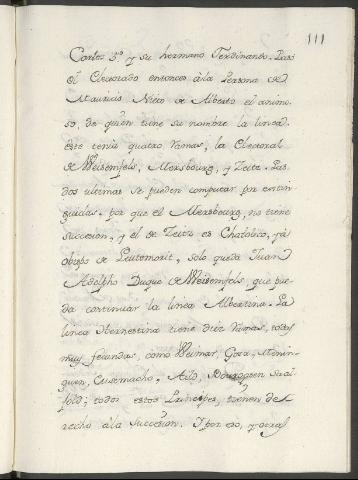 111
Carlos 5º y su hermano Ferdinando. Paso
el Electorado entonces à la Persona de
Mauricio Nieto de Alberto el animo-
so, de quien tiene su nombre la linea.
Este tenia quatro ramas, la Electoral
de Weisemfels, Mersbourg, y Zeitz. Las
dos ultimas se pueden computar por extin-
guidas, por que el Mersbourg, no tiene
succesion, y el de Zeitz es Chatolico, y à
obispo de Leutomorit, solo queda Juan
Adolpho Duque de Weisemfels, que pue-
da continuar la linea Albertina. La
linea Hernestina tiene diez ramas, todas
muy fecundas, como Weimar, Gota, Menin-
guen, Eusemacho, Salfold; todos estos Principes, tienen de-
recho à la Succesion. Y por eso, y otras